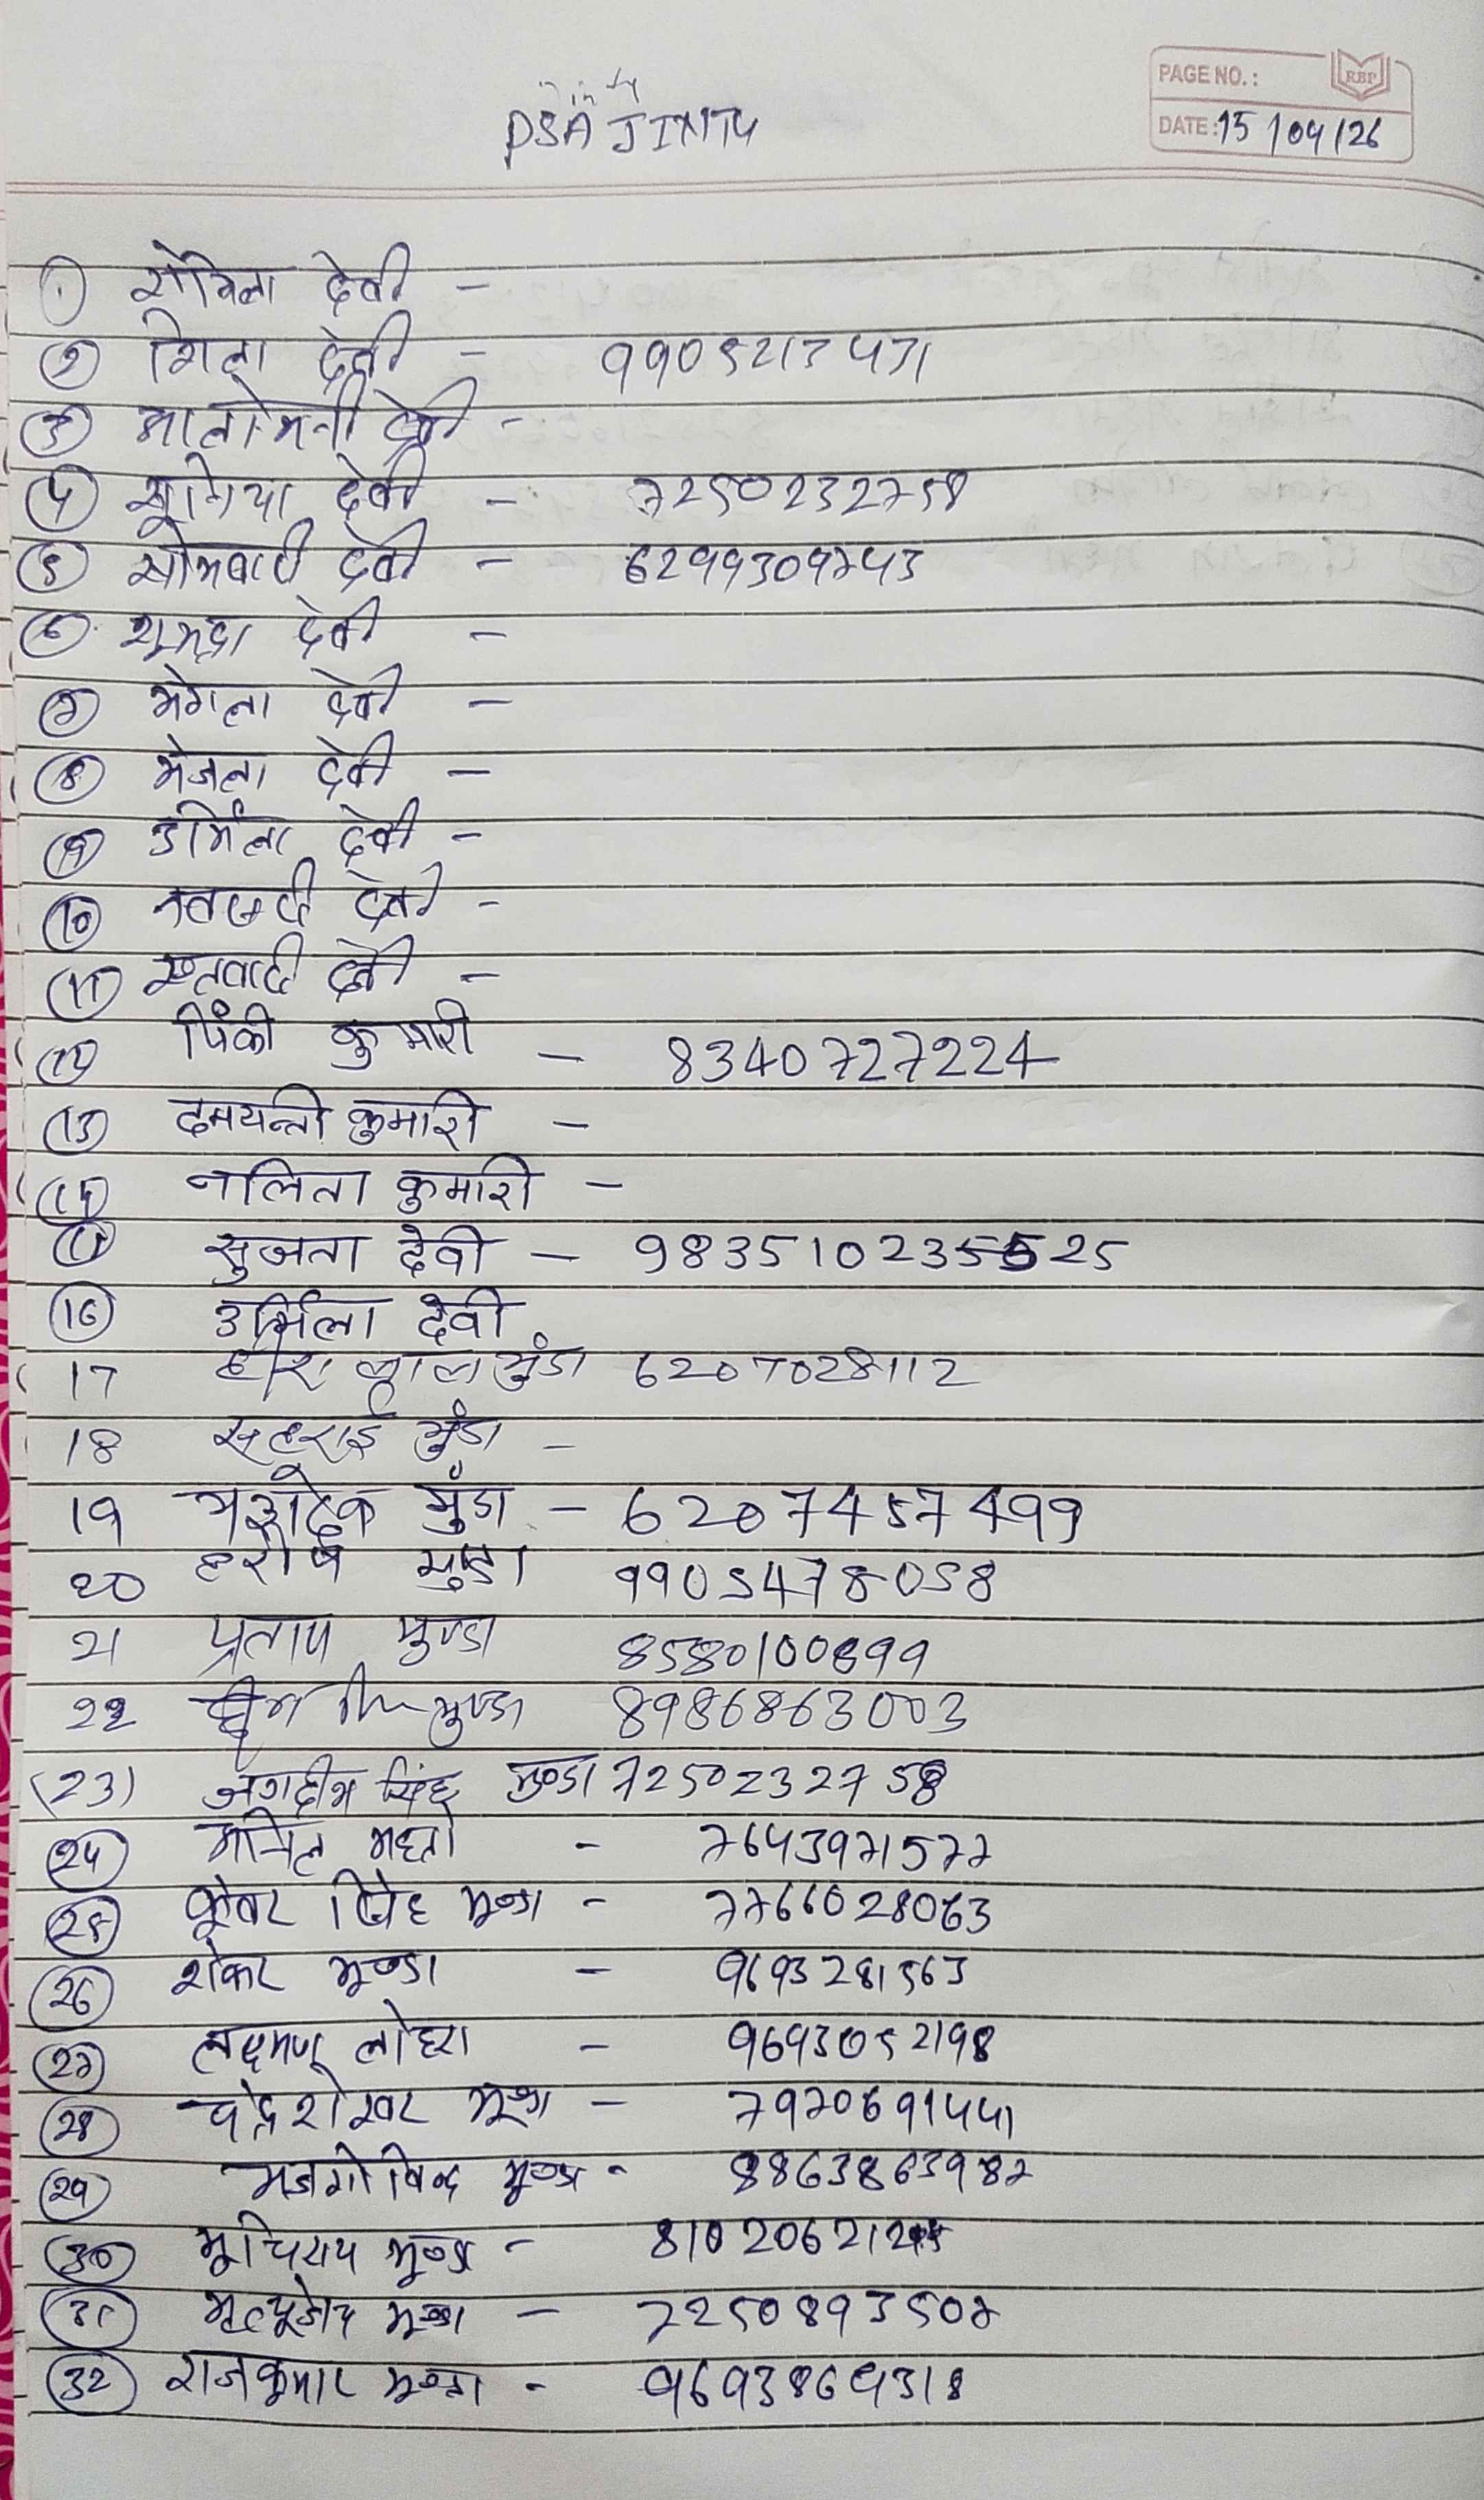 PAGE NO.:
RBP
DATE: 15/04/26
PSA JINTU
① शोविला देवी -
② शिला देवी - 9905213431
③ मालोमनी देवी -
④ सूमिया देवी - 7250232758
⑤ सोमवारी देवी - 6299309743
⑥ शुभद्रा देवी -
⑦ मंगला देवी -
⑧ मंजला देवी -
⑨ उर्मिला देवी -
⑩ देवी -
⑪ देवी -
⑫ पिंकी कुमारी - 8340727224
⑬ दमयन्ती कुमारी -
⑭ ललिता कुमारी -
⑮ सुजता देवी - 983510235525
⑯ उर्मिला देवी
17 हीरा लाल मुंडा 6207028112
18 सहराई मुंडा -
19 मुंडा - 6207457499
20 मुण्डा 9905478058
21 प्रताप मुण्डा 8580100899
22 मुण्डा 8986863003
(23) जगदीश सिंह मुण्डा 7250232758
(24) महतो - 7643971577
(25) कुंवर सिंह मुण्डा - 7766028063
(26) शंकर मुण्डा - 9693281563
(27) लक्ष्मण लोहरा - 9693052198
(28) चंद्रशेखर मुण्डा - 7970691441
(29) मुण्डा - 8863863987
(30) मुचिराय मुण्डा - 81020621
(31) मुण्डा - 7250893507
(32) राजकुमार मुण्डा - 9693869318